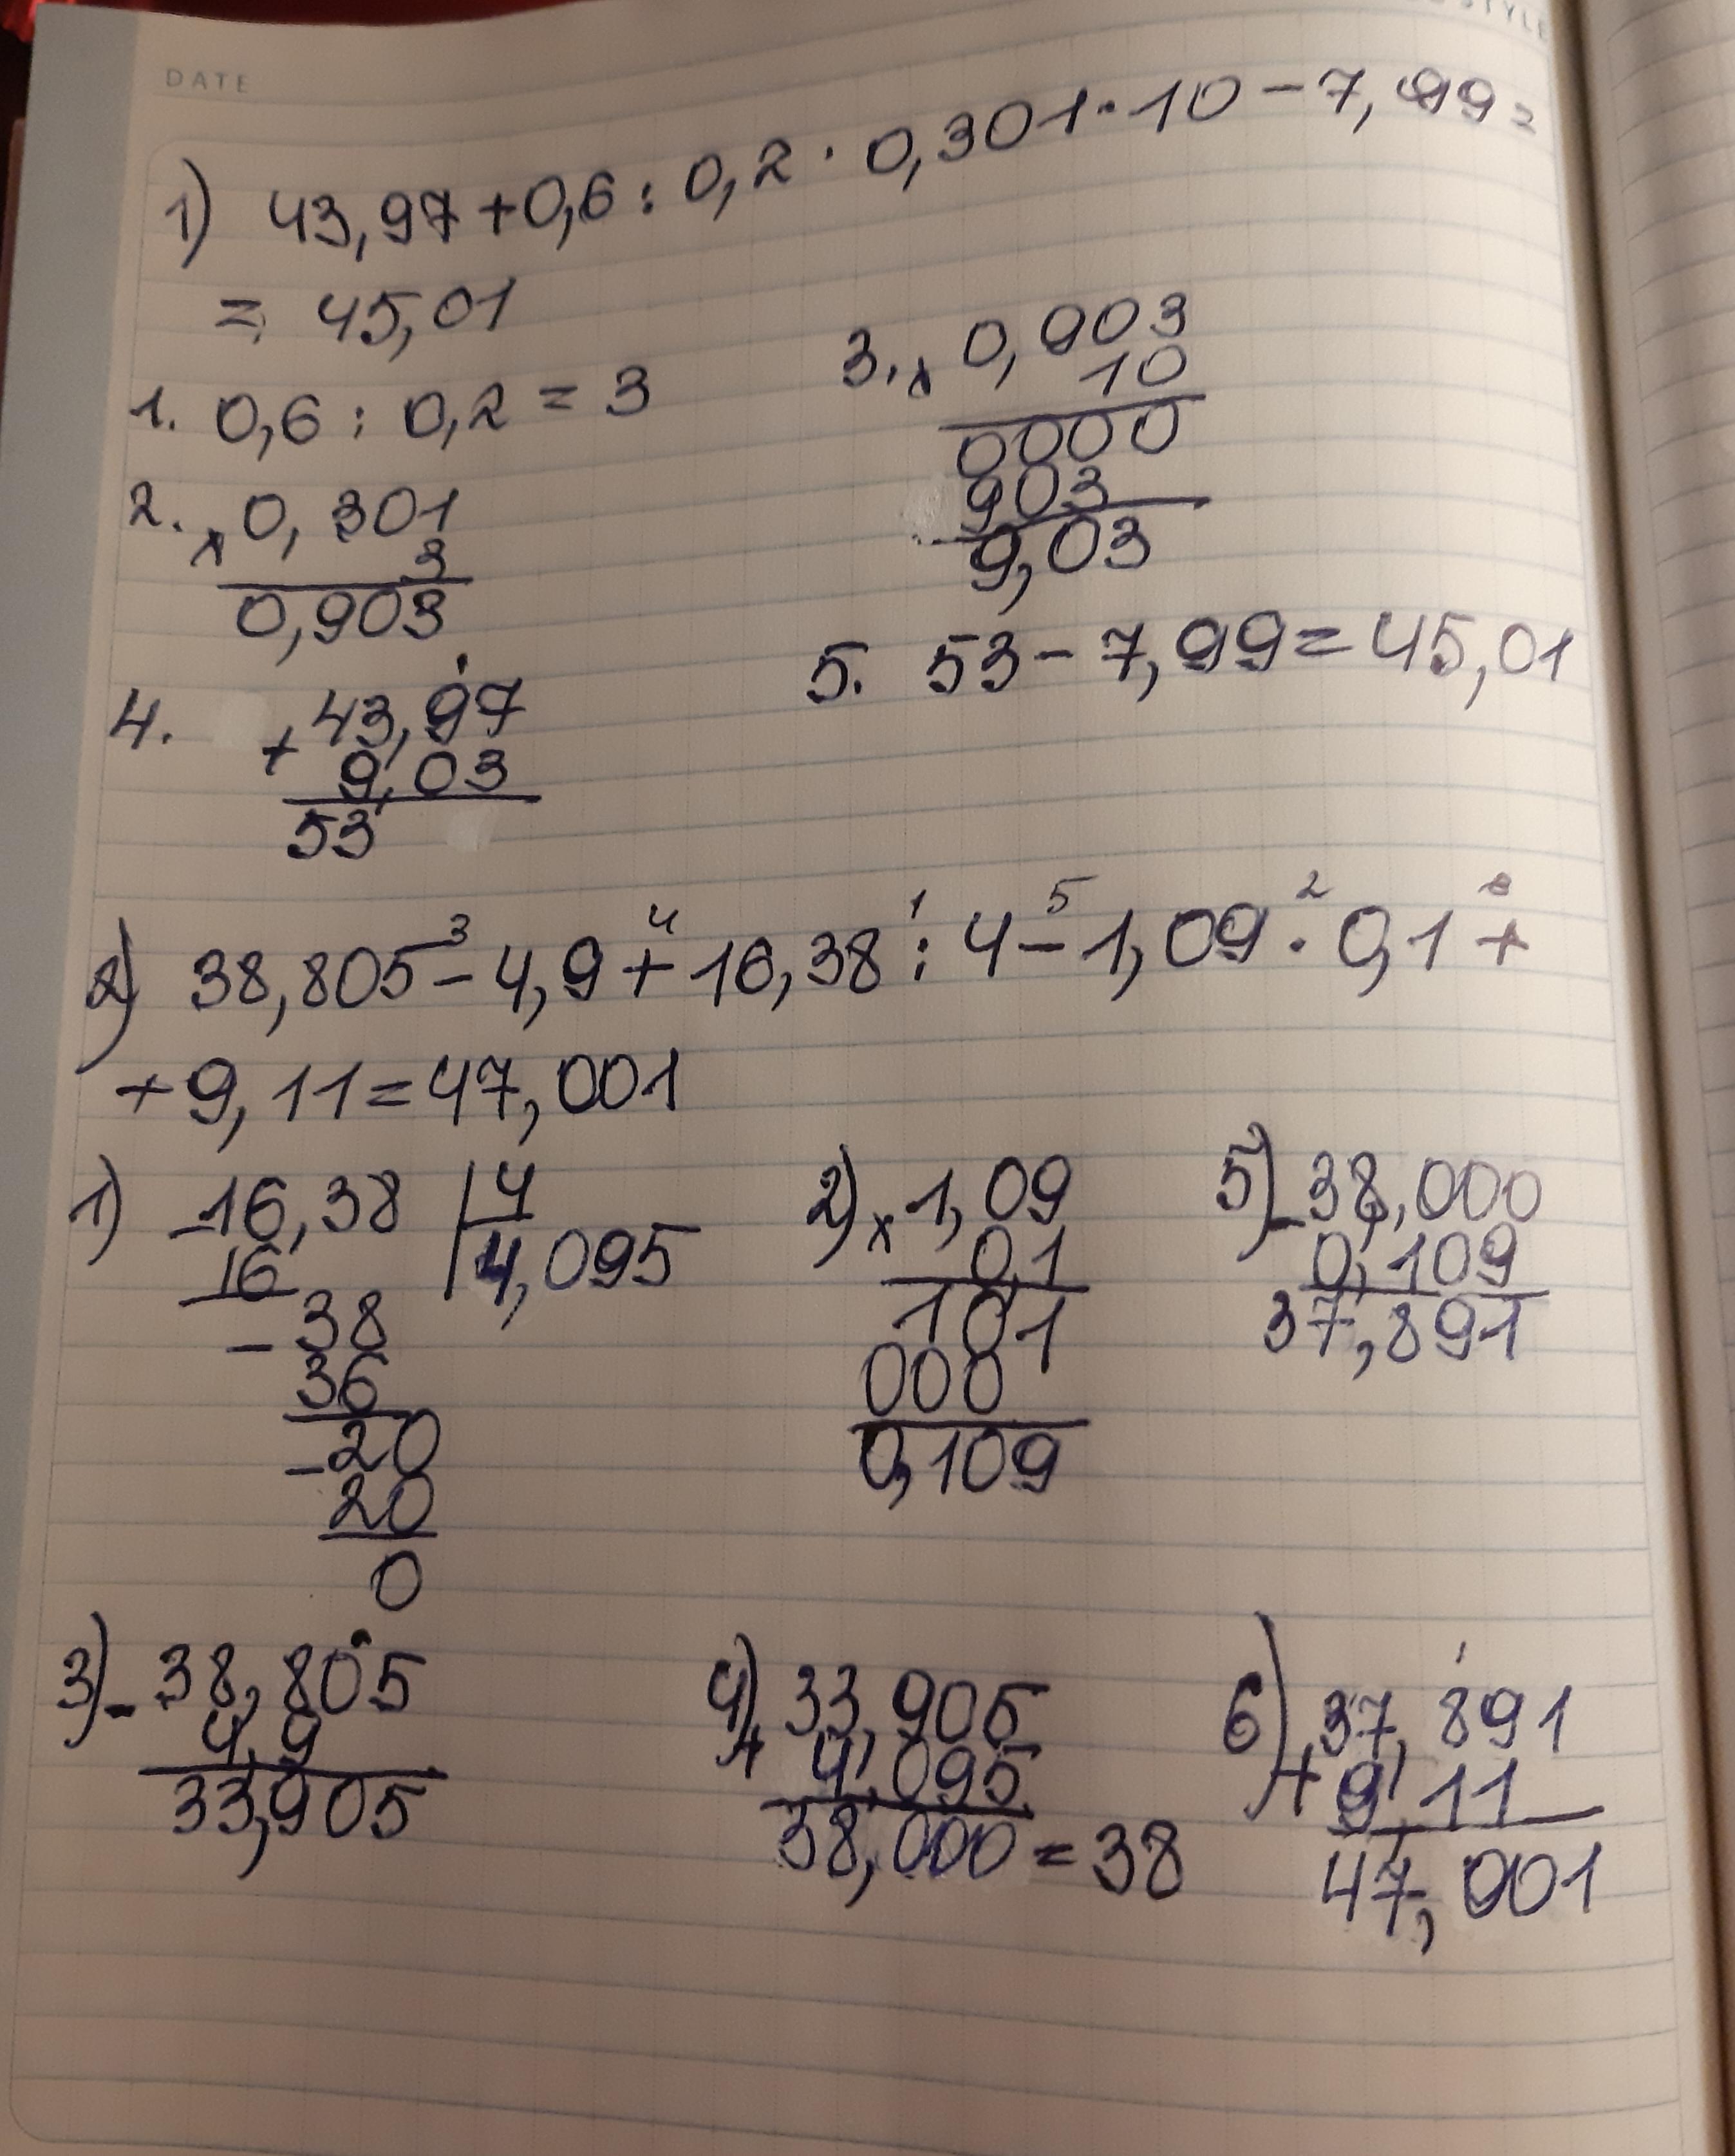 STYLE
DATE
1) 43,97+0,6:0,2·0,301·10-7,99=
= 45,01
1. 0,6:0,2=3
2. x 0,301
3
0,903
3. x 0,903
10
0000
903
9,03
4. + 43,97
9,03
53
5. 53-7,99=45,01
2) 38,805-4,9+16,38:4-1,09·0,1+
3 4 1 5 2
+9,11=47,001
1) -16,38 | 4
16 4,095
-38
36
-20
20
0
2) x 1,09
0,1
101
000
0,109
5) -38,000
0,109
37,891
3) -38,805
4,9
33,905
4) + 33,905
4,095
38,000 = 38
6) + 37,891
9,11
47,001